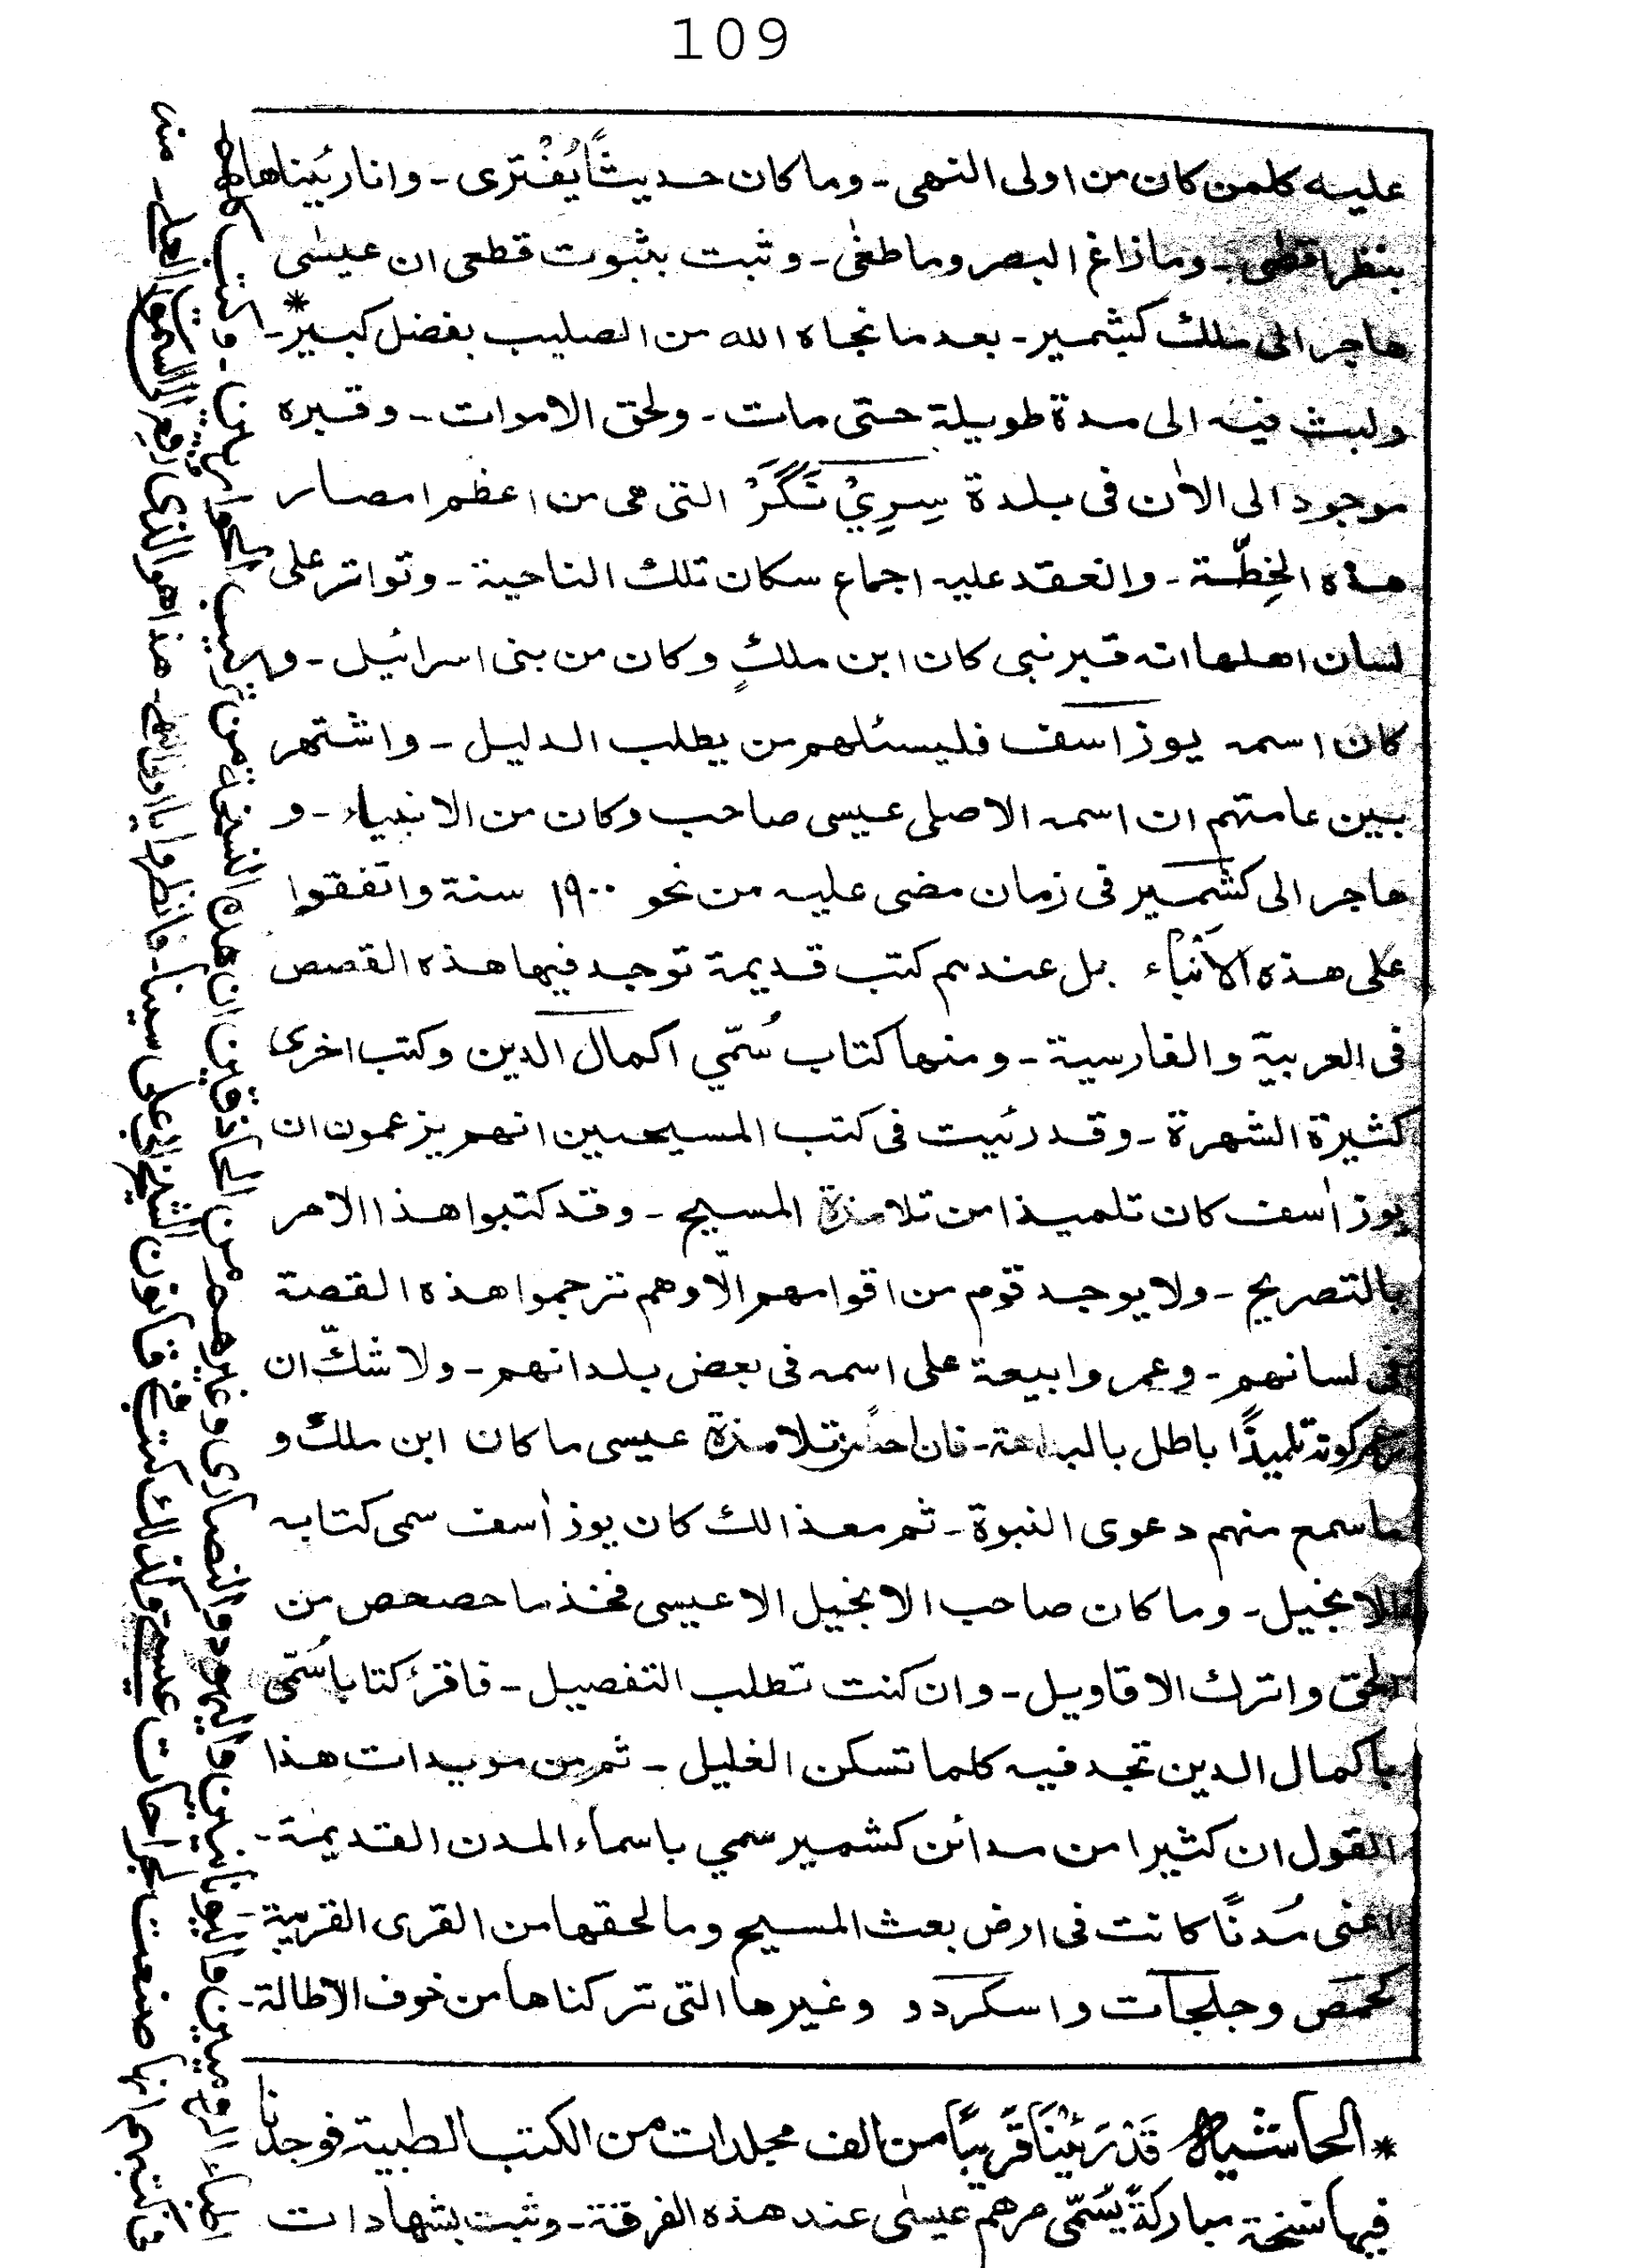 109
عليه كلمن كان من اولى النهى ـ وما كان حديثًا يُفْترى ـ وانا رئيناها
بنظر اقصى ـ وما زاغ البصر وما طغٰى ـ و ثبت بثبوت قطعى ان عيسٰى
هاجر الى ملك كشمير ـ بعد ما نجاه الله من الصليب بفضل كبير* ـ
ولبث فيه الى مدة طويلة حتى مات ـ ولحق الاموات ـ وقبره
موجود الى الاٰن فى بلدة سِرِيْ نَگَرْ التى هى من اعظم امصار
هذه الخِطّة ـ وانعقد عليه اجماع سكان تلك الناحية ـ وتواتر على
لسان اهلها انه قبر نبى كان ابن ملكٍ وكان من بنى اسرائيل ـ و
كان اسمه يوز اسف فليسئلهم من يطلب الدليل ـ واشتهر
بين عامتهم ان اسمه الاصلى عيسى صاحب وكان من الانبياء ـ و
هاجر الى كشمير فى زمان مضى عليه من نحو ١٩٠٠ سنة واتفقوا
على هذه الأنباء بل عندهم كتب قديمة توجد فيها هذه القصص
فى العربية والفارسية ـ ومنها كتاب سُمّي اكمال الدين وكتب اخرى
كثيرة الشهرة ـ وقد رئيت فى كتب المسيحيين انهم يزعمون ان
يوز اٰسف كان تلميذا من تلامذة المسيح ـ وقد كتبوا هذا الامر
بالتصريح ـ ولا يوجد قوم من اقوامهم الّا وهم ترجموا هذه القصة
فى لسانهم ـ وعمروا بيعة على اسمه فى بعض بلدانهم ـ ولا شكّ ان
زعم كونه تلميذًا باطل بالبداهة ـ فان احدًا من تلامذة عيسى ما كان ابن ملك و
ما سمع منهم دعوى النبوة ـ ثم معذالك كان يوز اٰسف سمى كتابه
الانجيل ـ وما كان صاحب الانجيل الا عيسى فخذ ما حصحص من
الحق واترك الاقاويل ـ وان كنت تطلب التفصيل ـ فاقرء كتابا سُمّى
باكمال الدين تجد فيه كلما تسكن الغليل ـ ثم من مويدات هذا
القول ان كثيرا من مدائن كشمير سمي باسماء المدن القديمة ـ
اعنى مُدنًا كانت فى ارض بعث المسيح وما لحقها من القرى القريبة ـ
كحمص وجلجات واسكردو وغيرها التى تركناها من خوف الاطالة ـ
* الحاشية قد رئينا قريبًا من الف مجلدات من الكتب الطبية فوجدنا
فيها نسخة مباركة يُسَمّى مرهم عيسٰى عند هذه الفرقة ـ وثبت بشهادات
اطباء الروميين واليونانيين واليهود والنصارى وغيرهم من الحاذقين ان هذه النسخة من تركيب الحواريين ـ وكتب كلهم
فى كتبهم انها صنعت لجراحات عيسى وكذالك كتب فى قانون الشيخ ابى على سينا ـ فانظروا يا اولى النهى ـ هذا هو الذى رفع الى السموات العلى ـ منه